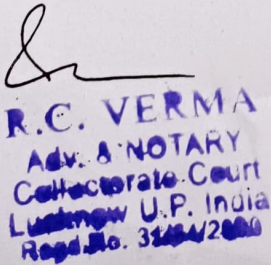 R.C. VERMA
Adv. & NOTARY
Collectorate Court
Lucknow U.P. India
Regd. No.